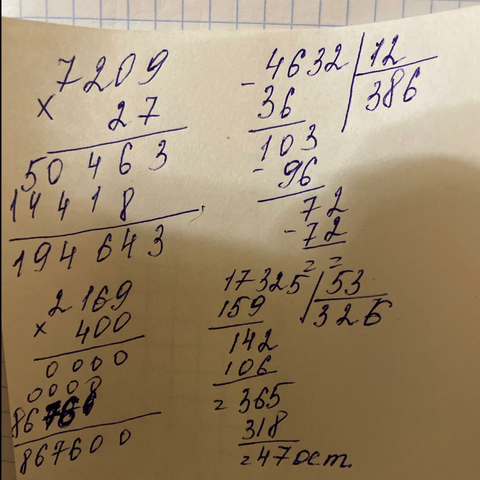 7209
× 27
50463
14418
194643
- 4632 | 12
36 | 386
103
- 96
72
- 72
= =
2169
× 400
0000
86
867600
17325 | 53
159 | 326
142
106
= 365
318
= 47 ост.